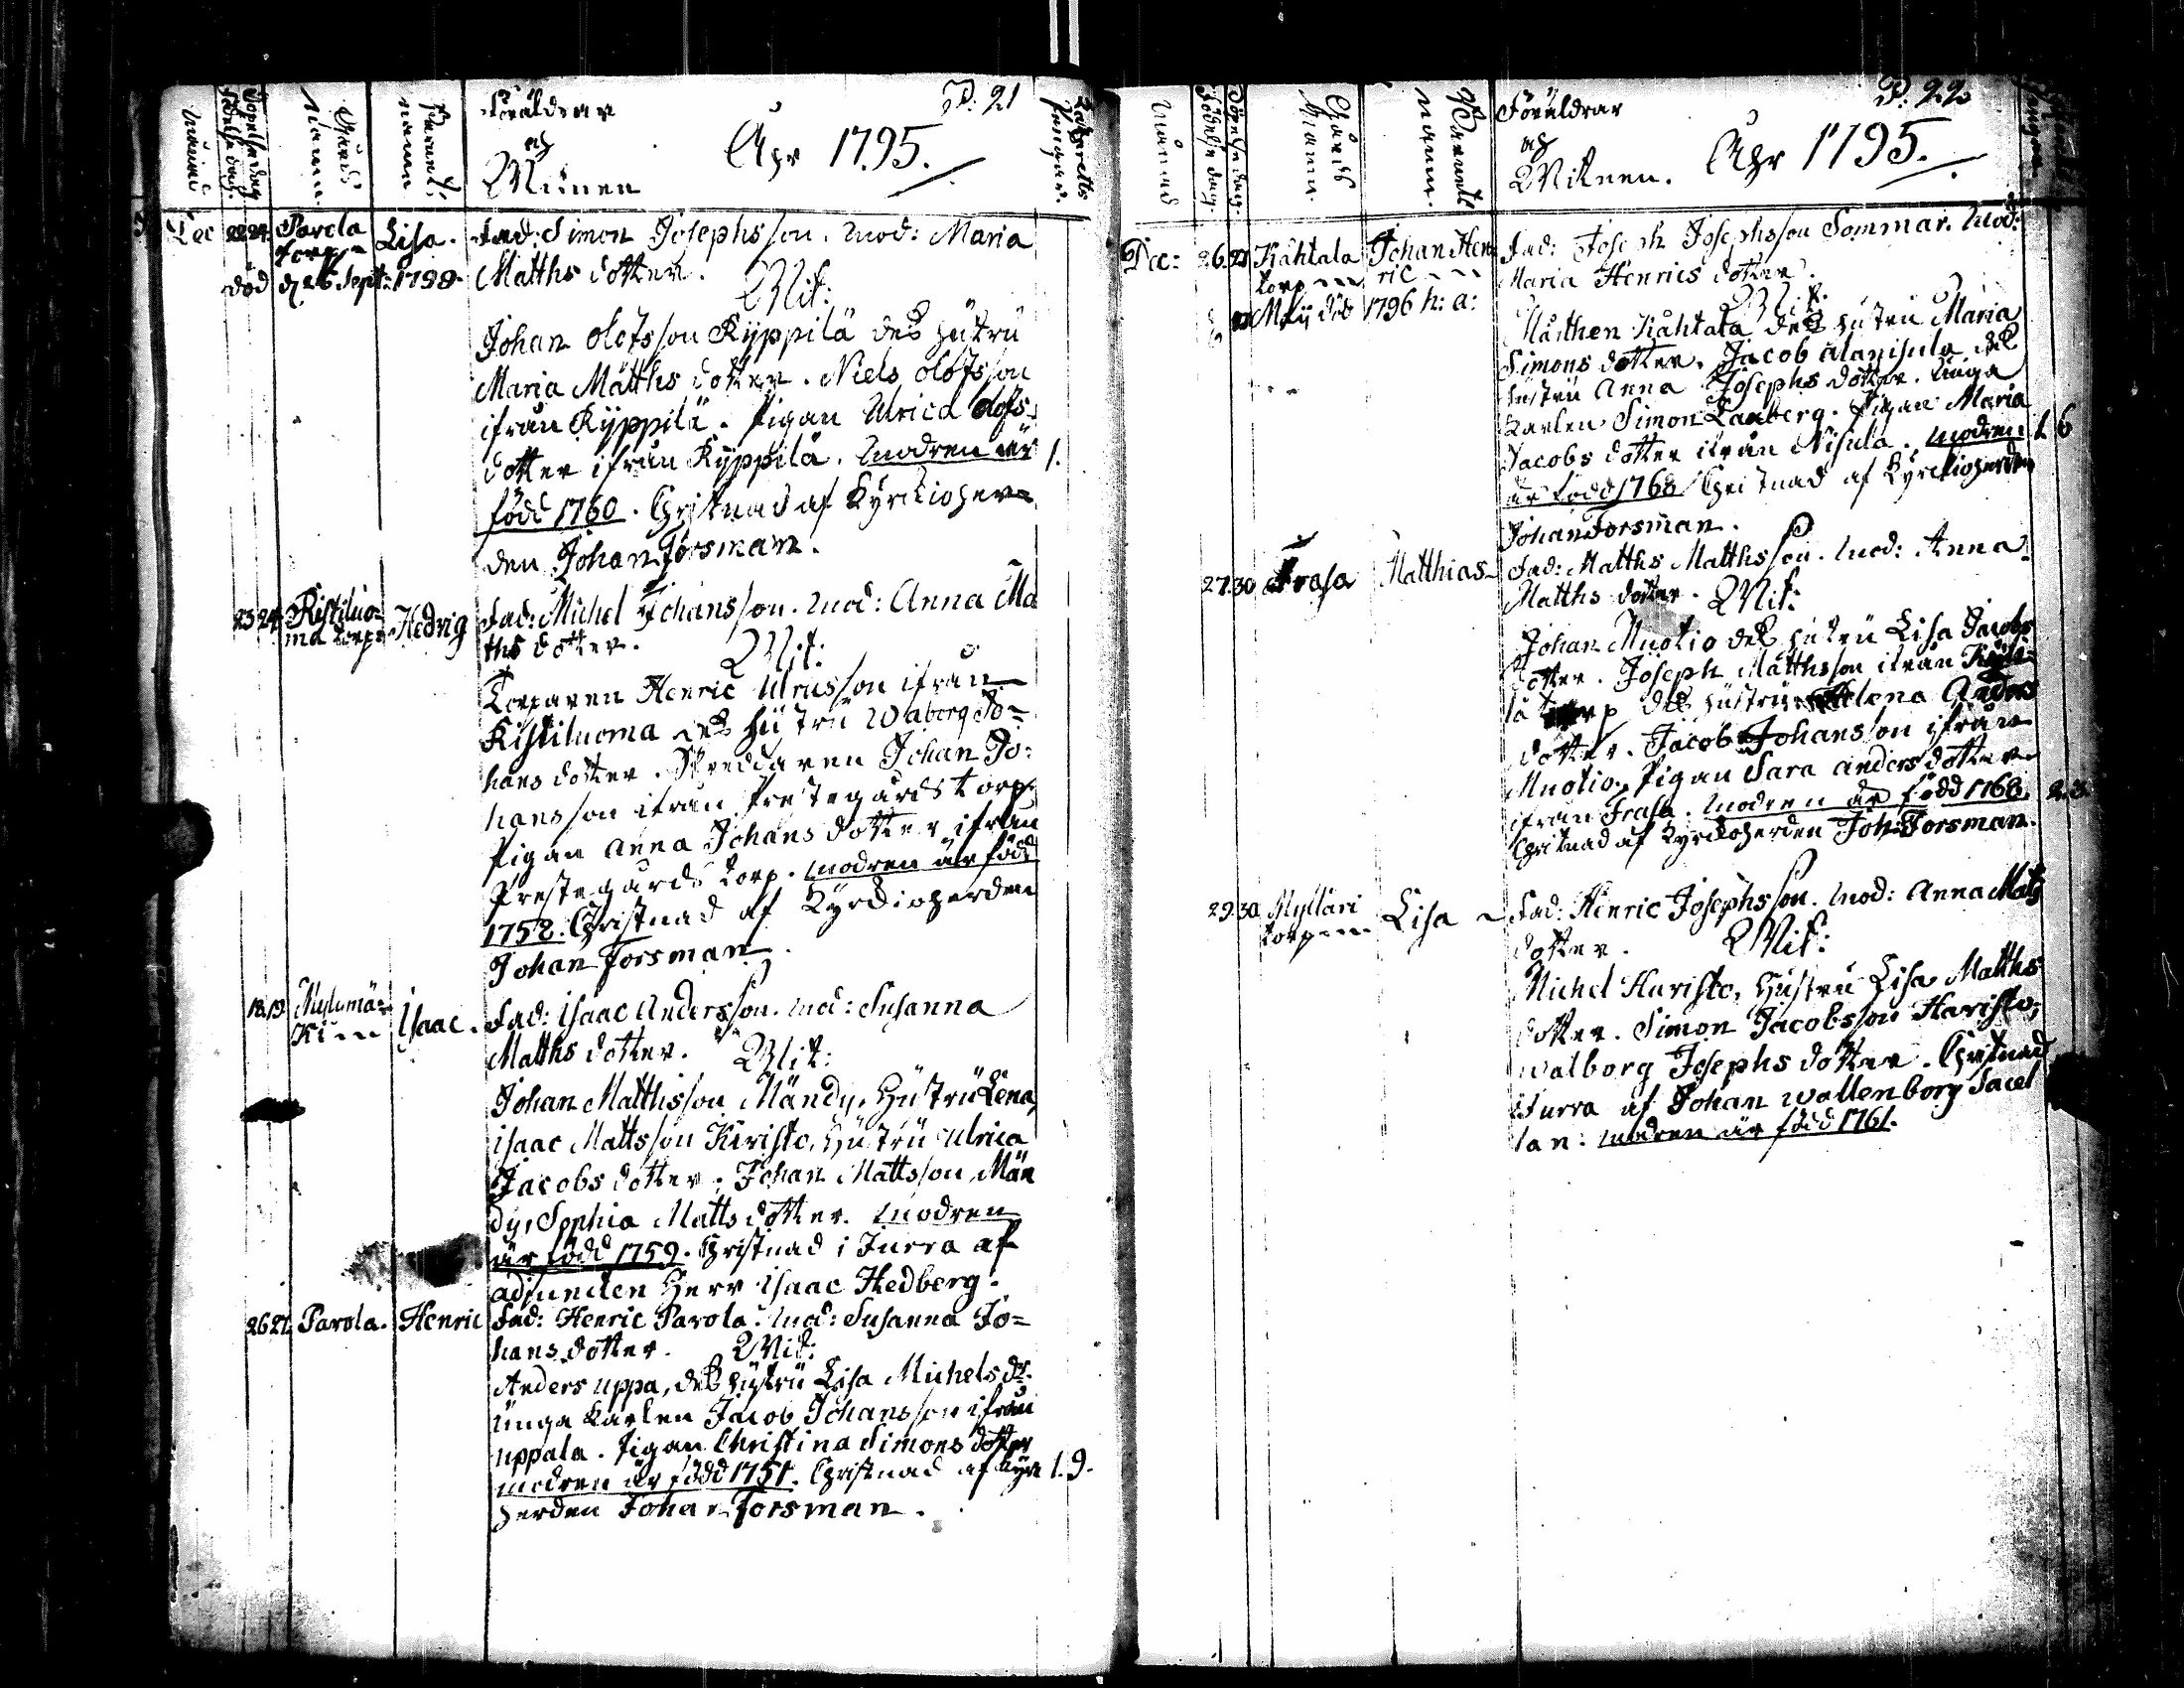 P. 21
Månad
Födelse dag.
Döpelse dag
Gårds Namn.
Barnets namn
Föräldrar och Witnen
Åhr 1795.
Dec 22 24. Parola torp Lisa. Fad: Simon Josephsson. Mod: Maria
död d. 26 Sept: 1798. Matths dotter. Wit:
Johan Olofsson Kyppilä des hustru
Maria Matths dotter. Niels Olofsson
ifrån Kyppilä. Pigan Ulrica Olofs
dotter ifrån Kyppilä. Modren är 1.
född 1760. Christnad af Kyrckioher-
den Johan Forsman.
23 24 Ristiluo- Hedvig Fad: Michel Johansson. Mod: Anna Ma
ma torp ths dotter. Wit:
Torparen Henric ifrån
Ristiluoma des hustru Waborg Jo-
hans dotter. Skreddaren Johan Jo:
hansson ifrån Prestegårds torp.
Pigan Anna Johans dotter ifrån
Prestegårds torp. Modren är född
1752. Christnad af Kyrckioherden
Johan Forsman.
18,19. Isaac. Fad: Isaac Andersson. Mod: Susanna
Matths dotter. Wit:
Johan Matthsson Mändy, Hustru Lena,
Isaac Mattsson Hustru Ulrica
Jacobs dotter. Johan Mattsson Män
dy, Sophia Matts dotter. Modren
är född 1759. Christnad i Jurva af
adjuncten Herr Isaac Hedberg.
26 27. Parola. Henric Fad: Henric Parola. Mod: Susanna Jo=
hans dotter. Wit:
Anders Uppa, des hustru Lisa Michels dr.
Unga Karlen Jacob Johansson ifrån
Uppala. Pigan Christina Simons dotter
modren är född 1751. Christnad af Kyrk 1. 9.
herden Johan Forsman.
P. 22
Månad
Födelse dag.
Döpelse dag.
Gårds Namn.
Barnets namn.
Föräldrar och Witnen.
Åhr 1795.
Dec: 26. 27 Kåhtala Johan Hen Fad: Joseph Josephsson Sommar. Mod:
torp ric Maria Henrics dotter.
Maij död 1796 h: a: Wit.
Kåhtala des hustru Maria
Simons dotter. Jacob des
hustru Anna Josephs dotter. Unga
Karlen Simon Lanberg. Pigan Maria
Jacobs dotter ifrån Nisula. Modren 1. 6
är född 1768 Christnad af Kyrckioherden
Johan Forsman.
27. 30 Frasa Matthias Fad: Matths Matthsson. Mod: Anna
Matths dotter. Wit:
Johan Muotio des hustru Lisa Jacobs
dotter. Joseph Matthsson ifrån
torp des hustru Helena Anders
dotter. Jacob Johansson ifrån
Muotio. Pigan Sara Anders dotter
ifrån Frasa. Modren är född 1768. 2. 3.
Christnad af Kyrckioherden Joh: Forsman.
29. 30. Myllari Lisa Fad: Henric Josephsson. Mod: Anna Mats
torp dotter. Wit:
Michel Haristo, hustru Lisa Matths
dotter. Simon Jacobsson Haristo,
Walborg Josephs dotter. Christnad
i Jurva af Johan Wallenborg Sacel
lan: Modren är född 1761.